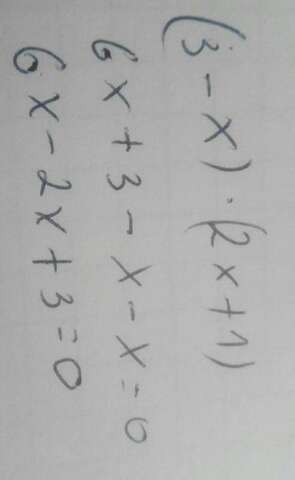 (3-x)·(2x+1)
6x+3-x-x=0
6x-2x+3=0